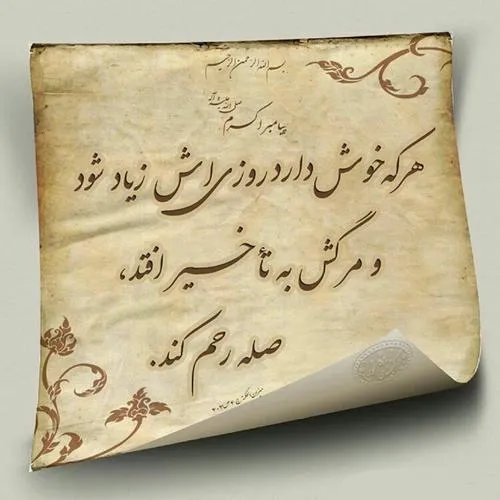 بسم الله الرحمن الرحیم
پیامبر اکرم صلی الله علیه و آله
هر که خوش دارد روزی اش زیاد شود
و مرگش به تأخیر افتد،
صله رحم کند.